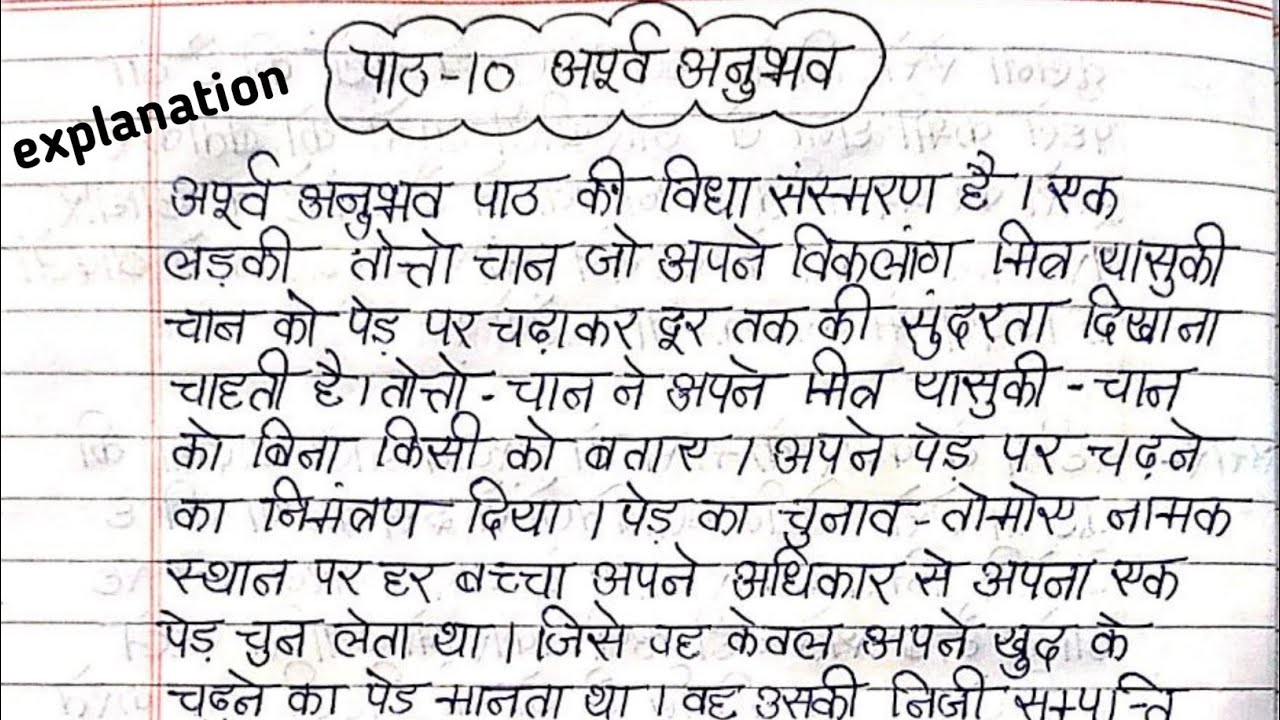 पाठ-10 अपूर्व अनुभव
explanation
अपूर्व अनुभव पाठ की विधा संस्मरण है । एक
लड़की तोत्तो चान जो अपने विकलांग मित्र यासुकी
चान को पेड़ पर चढ़ाकर दूर तक की सुंदरता दिखाना
चाहती है। तोत्तो - चान ने अपने मित्र यासुकी - चान
को बिना किसी को बताए । अपने पेड़ पर चढ़ने
का निमंत्रण दिया । पेड़ का चुनाव - तोमोए नामक
स्थान पर हर बच्चा अपने अधिकार से अपना एक
पेड़ चुन लेता था । जिसे वह केवल अपने खुद के
चढने का पेड मानता था । वह उसकी निजी सम्पत्ति